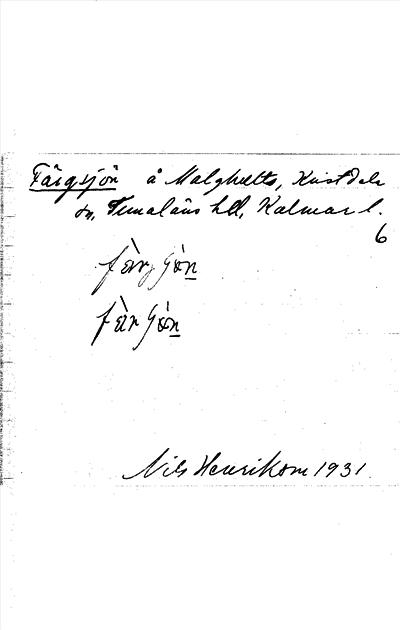 Färgsjön å Malghults, Kristdala
sn, Tunaläns hd, Kalmar l.
6
Nils Henrikson 1931.